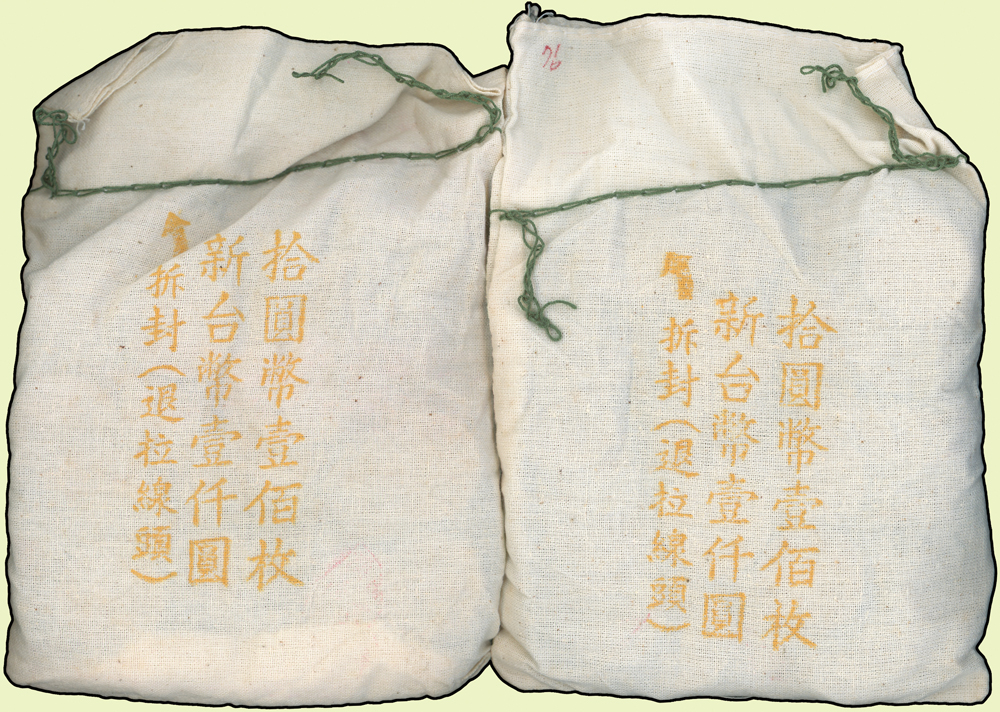 拾圓幣壹佰枚
新台幣壹仟圓
拆封（退拉線頭）
76
拾圓幣壹佰枚
新台幣壹仟圓
拆封（退拉線頭）